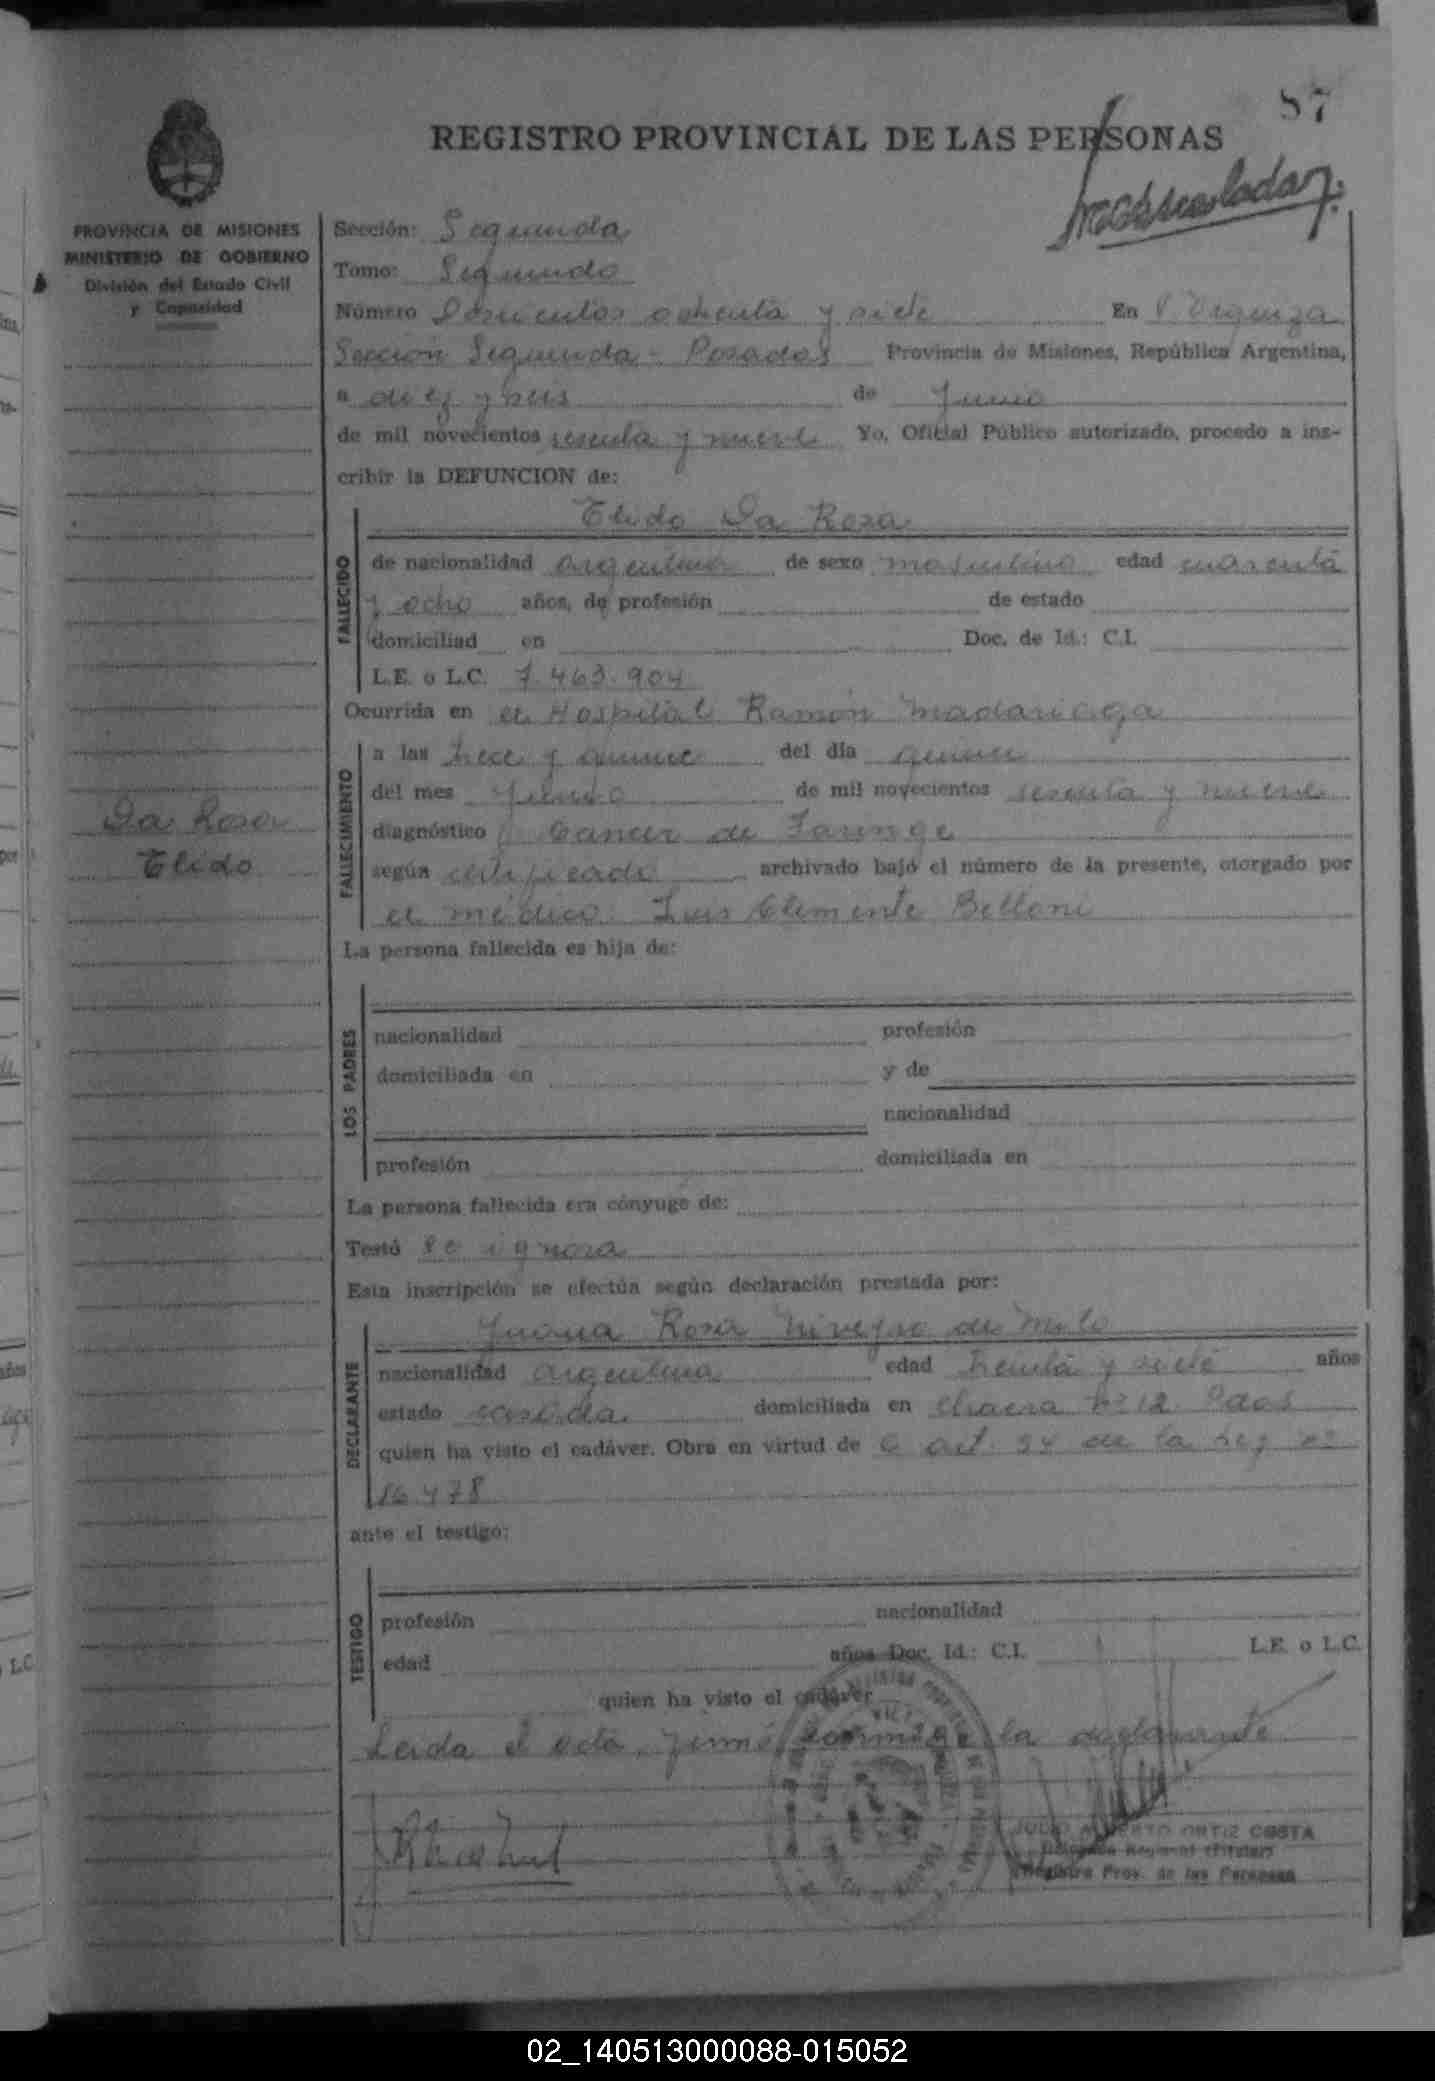 87
REGISTRO PROVINCIAL DE LAS PERSONAS
PROVINCIA DE MISIONES
MINISTERIO DE GOBIERNO
División del Estado Civil
y Capacidad
Sección: Segunda
Tomo: Segundo
Número Doscientos ochenta y siete En V. Urquiza
Sección Segunda - Posadas Provincia de Misiones, República Argentina,
a diez y seis de Junio
de mil novecientos sesenta y nueve Yo, Oficial Público autorizado, procedo a ins-
cribir la DEFUNCION de:
Elido Da Rosa
FALLECIDO
de nacionalidad argentina de sexo masculino edad cuarenta
y ocho años, de profesión de estado
domiciliad en Doc. de Id.: C.I.
L.E. o L.C. 7.463.904
Ocurrida en el Hospital Ramón Madariaga
FALLECIMIENTO
a las trece y quince del día quince
del mes Junio de mil novecientos sesenta y nueve
diagnóstico Cancer de Laringe
según certificado archivado bajo el número de la presente, otorgado por
el médico: Luis Clemente Belloni
Da Rosa
Elido
La persona fallecida es hija de:
LOS PADRES
nacionalidad profesión
domiciliada en y de
nacionalidad
profesión domiciliada en
La persona fallecida era cónyuge de:
Testó Se ignora
Esta inscripción se efectúa según declaración prestada por:
Juana Rosa de Melo
DECLARANTE
nacionalidad argentina edad treinta y siete años
estado casada domiciliada en chacra Nº 12 Pdas
quien ha visto el cadáver. Obra en virtud de art. 54 de la Ley nº
16.478
ante el testigo:
TESTIGO
profesión nacionalidad
edad años Doc. Id.: C.I. L.E. o L.C.
quien ha visto el cadáver
Leida el acta, firmó conmigo la declarante
JULIO ALBERTO ORTIZ COSTA
Delegado Regional (Titular)
Registro Prov. de las Personas
02_140513000088-015052